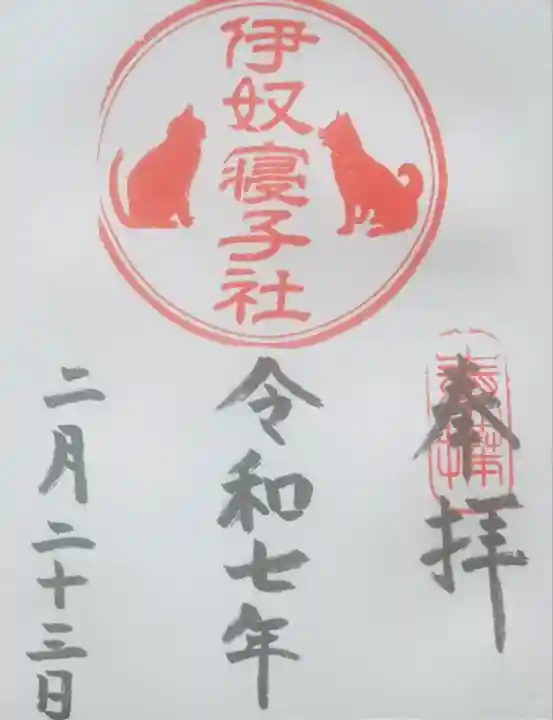 奉拝
奉拝
伊奴寝子社
令和七年
二月二十三日